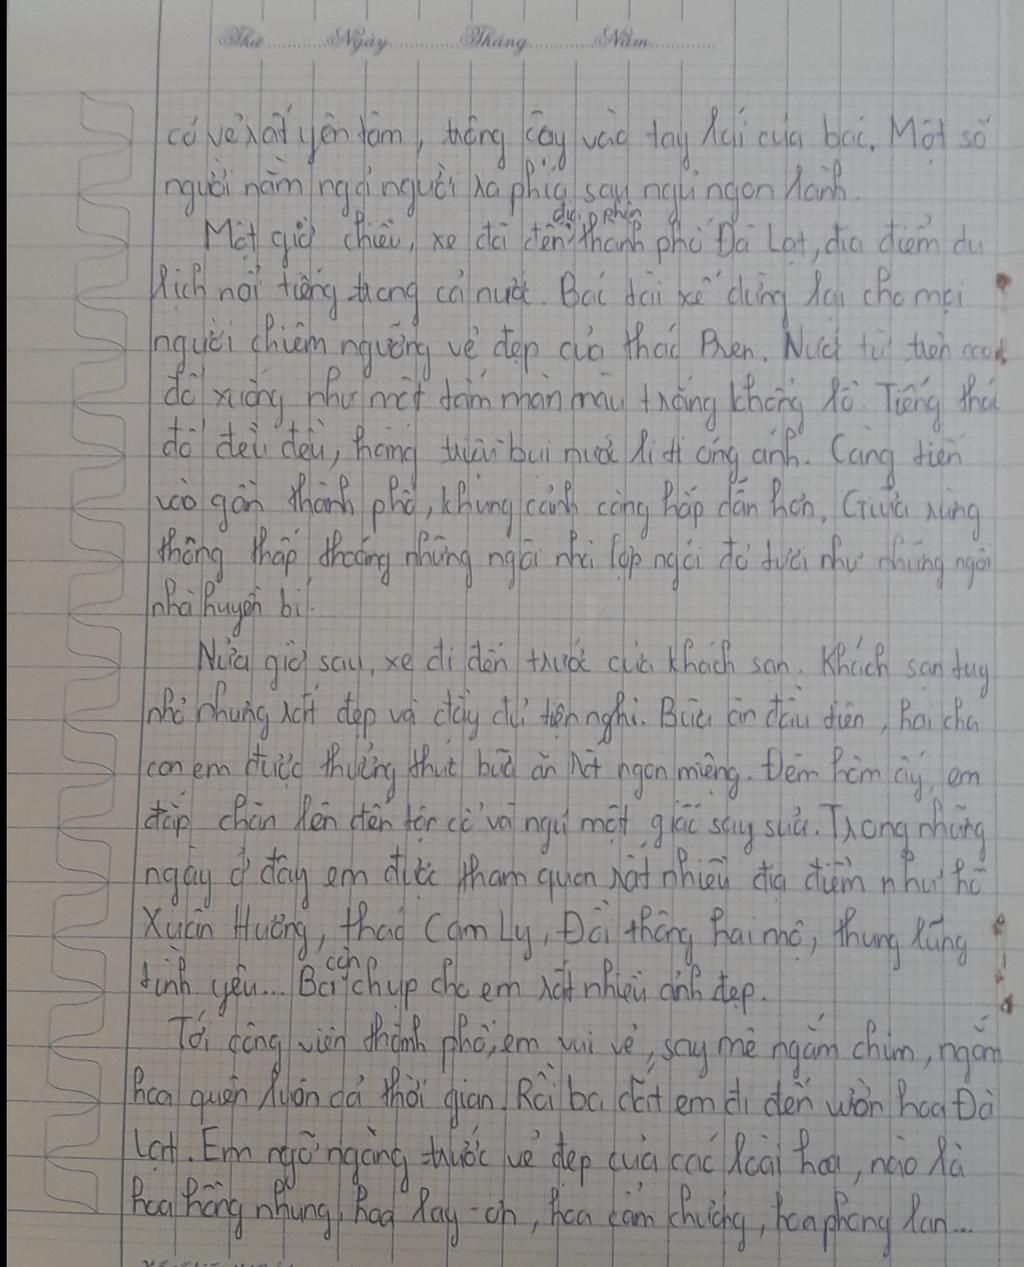 Thứ Ngày Tháng Năm
có vẻ rất yên tâm, trông cậy vào tay lái của bác. Một số
người nằm ngả người ra phía sau ngủ ngon lành.
Một giờ chiều, xe đã đến địa phận thành phố Đà Lạt, địa điểm du
lịch nổi tiếng trong cả nước. Bác tài xế dừng lại cho mọi
người chiêm ngưỡng vẻ đẹp của thác Pren. Nước từ trên cao
đổ xuống như một tấm màn màu trắng khổng lồ. Tiếng thác
đổ đều đều, hàng triệu bụi nước li ti óng ánh. Càng tiến
vào gần thành phố, khung cảnh càng hấp dẫn hơn, Giữa rừng
thông thấp thoáng những ngôi nhà lợp ngói đỏ tươi như những ngôi
nhà huyền bí.
Nửa giờ sau, xe đi đến trước cửa khách sạn. Khách sạn tuy
nhỏ nhưng rất đẹp và đầy đủ tiện nghi. Bữa ăn đầu tiên, hai cha
con em được thưởng thức bữa ăn rất ngon miệng. Đêm hôm ấy, em
đắp chăn lên đến tận cổ và ngủ một giấc say sưa. Trong những
ngày ở đây em được tham quan rất nhiều địa điểm như hồ
Xuân Hương, thác Cam Ly, Đồi thông hai mộ, thung lũng
tình yêu... Ba còn chụp cho em rất nhiều ảnh đẹp.
Tới công viên thành phố, em vui vẻ, say mê ngắm chim, ngắm
hoa quên luôn cả thời gian. Rồi ba dắt em đi đến vườn hoa Đà
Lạt. Em ngỡ ngàng trước vẻ đẹp của các loài hoa, nào là
hoa hồng nhung, hoa lay-ơn, hoa cẩm chướng, hoa phong lan...